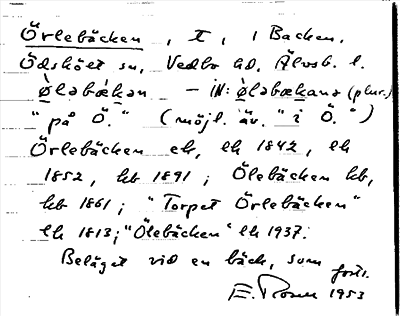 Örlebäcken, T, i Backen,
Ödskölt sn, Vedbo hd, Älvsb. l.
ø̀ləbækən – iN: ø̀ləbækana (plur.)
"på Ö." (möjl. äv. "i Ö.")
Örlebäcken ek, lk 1842, lk
1852, kb 1891; Ölebäcken kb,
kb 1861; "Torpet Örlebäcken"
lk 1813; "Ölebäcken" lk 1937.
Beläget vid en bäck, som forts.
E. Rosen 1953